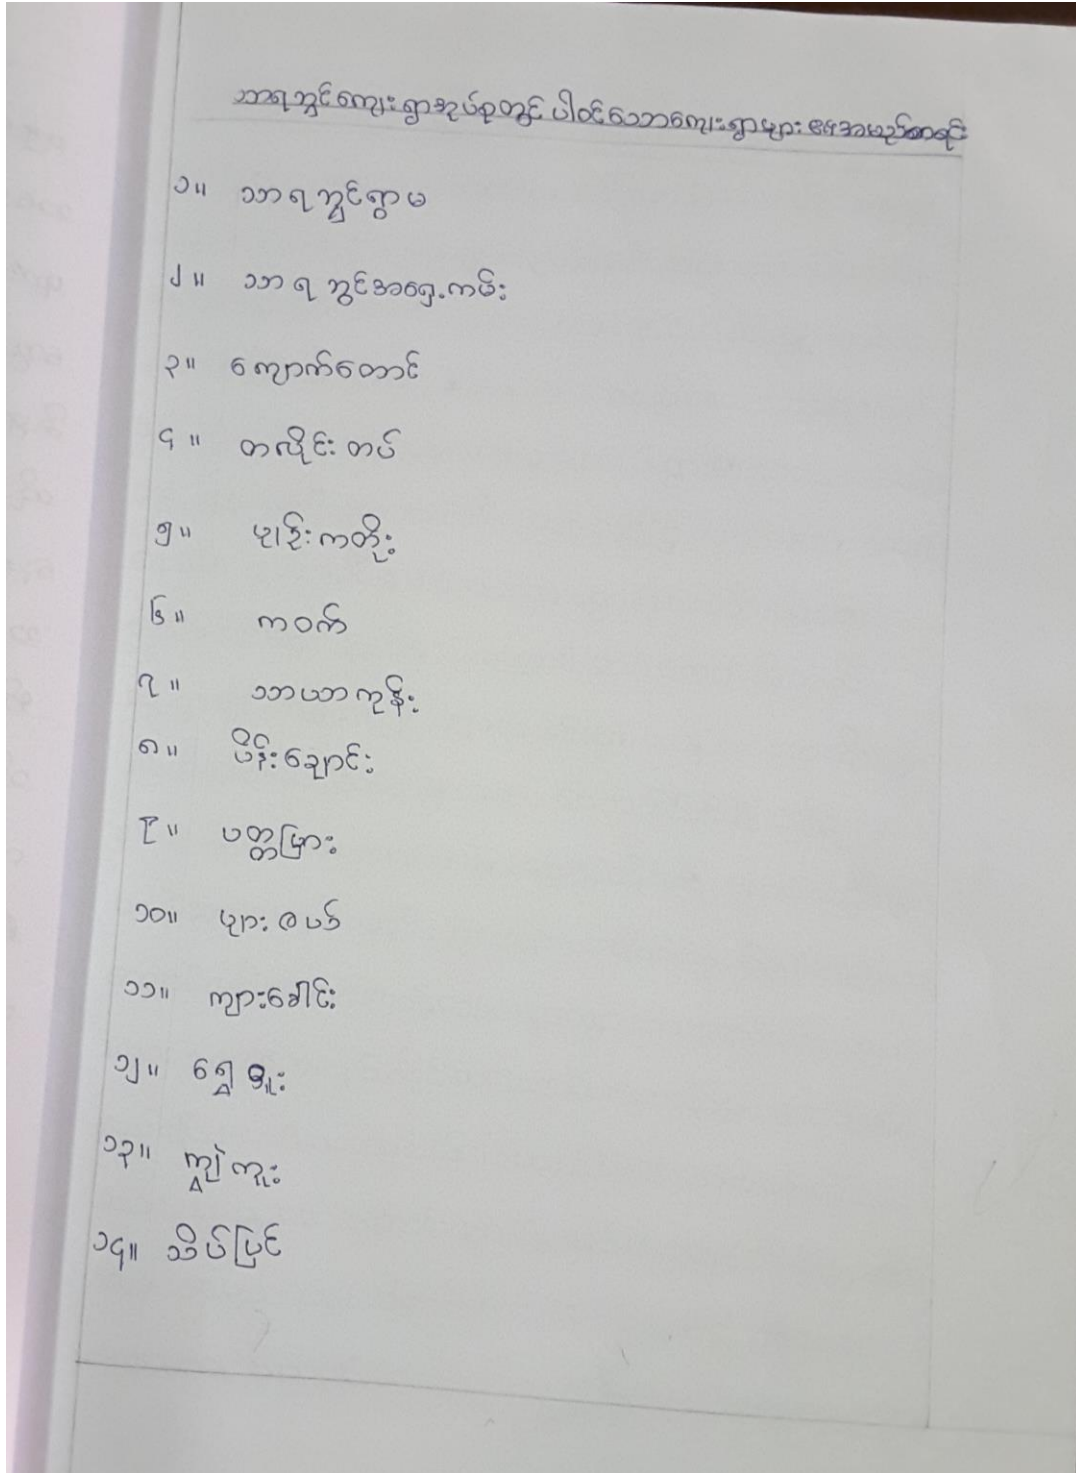 သာရဘွင်ကျေးရွာအုပ်စုတွင် ပါဝင်သောကျေးရွာများ၏အမည်စာရင်း
၁။ သာရဘွင်ရွာမ
၂။ သာရဘွင်အရှေ့ကမ်း
၃။ ကျောက်တောင်
၄။ တလိုင်းတပ်
၅။ ကတိုး
၆။ ကဝက်
၇။ သာယာကုန်း
၈။ ပိန်းချောင်း
၉။ ပတ္တမြား
၁၀။ များ
၁၁။ ကျားခေါင်း
၁၂။ ရွှေဒူး
၁၃။ ကျွဲကူး
၁၄။ သိပ်ပြင်